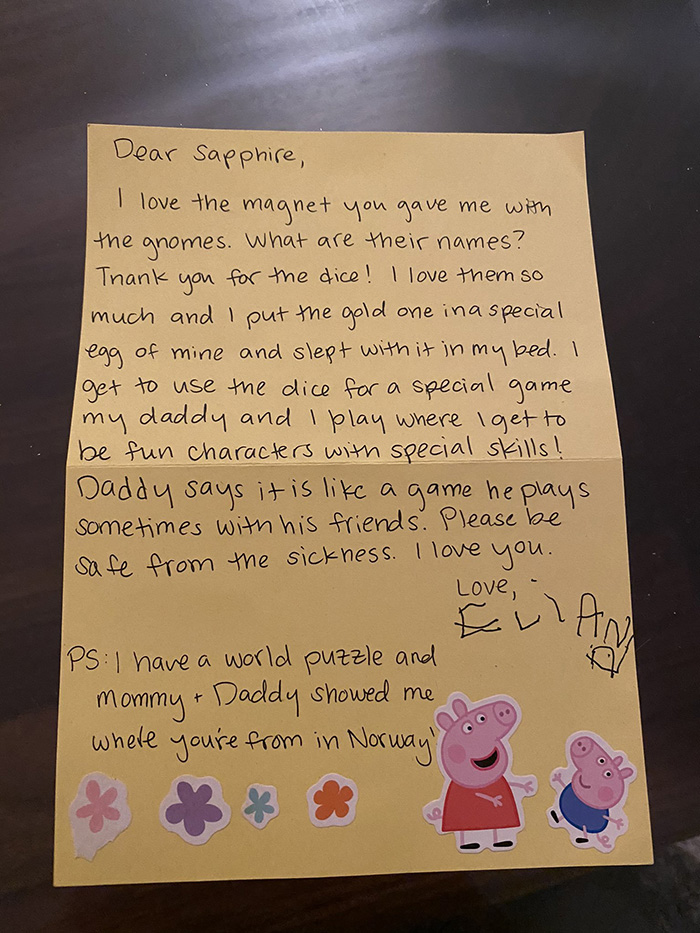 Dear Sapphire,
I love the magnet you gave me with
the gnomes. What are their names?
Thank you for the dice! I love them so
much and I put the gold one in a special
egg of mine and slept with it in my bed. I
get to use the dice for a special game
my daddy and I play where I get to
be fun characters with special skills!
Daddy says it is like a game he plays
sometimes with his friends. Please be
safe from the sickness. I love you.
Love,
PS: I have a world puzzle and
mommy + Daddy showed me
where you're from in Norway!